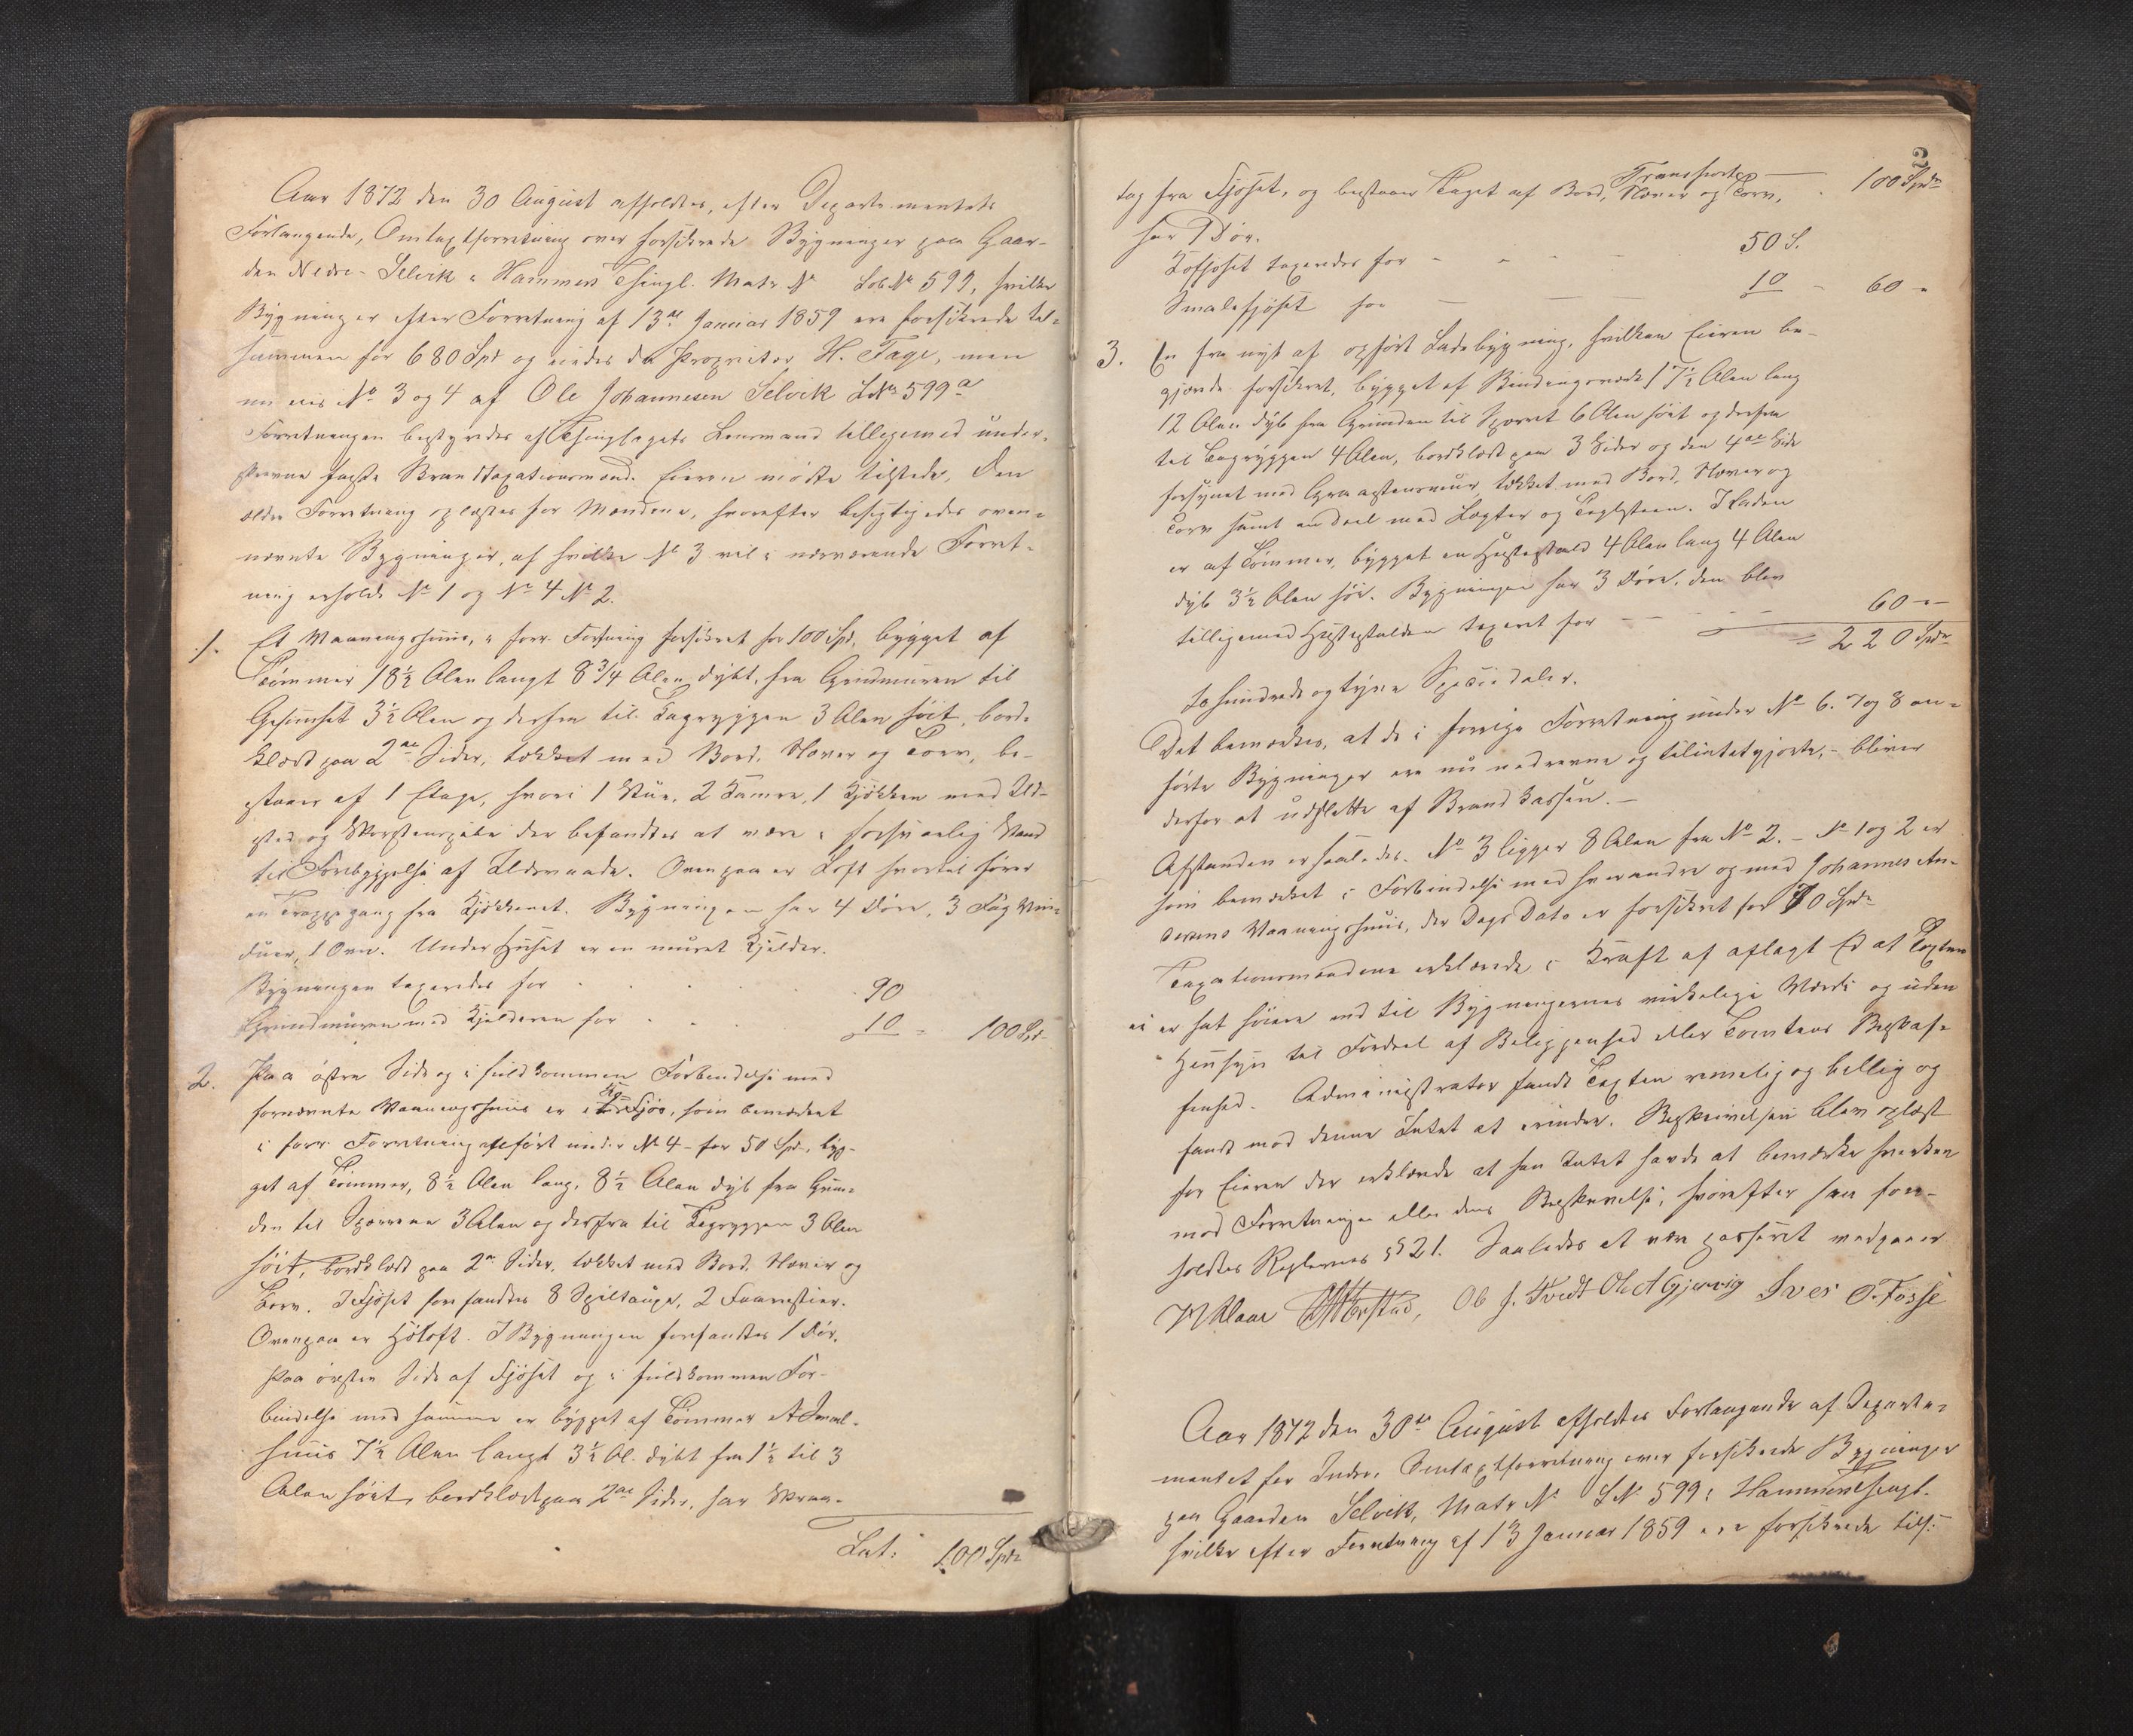 Aar 1872 den 30 August afholdtes, efter Departementets
Forlangende, Omtaxtforretning over forsikrede Bygninger paa Gaar-
den Nedre-Selvik i Hammers Thingl. Matr N° Lob N° 599, hvilke
Bygninger efter Forretning af 13de Januar 1859 ere forsikrede til-
sammen for 680 Spd og eiedes da Proprietør H. Fage, men
nu eies N° 3 og 4 af Ole Johannesen Selvik LN° 599a
Forretningen bestyredes af Thinglagets Lensmand tillegemed under-
skrevne faste Brandtaxationsmænd. Eieren mødte tilstede. Den
ældre Forretning oplæstes for Mændene, hvorefter besigtigedes oven-
nævnte Bygninger, af hvilke N° 3 vil i nærværende Forret-
ning erholde N° 1 og N° 4 N° 2.
1. Et Vaaningshuus, i forr. Forretning forsikret for 100 Spd, bygget af
Tømmer 18½ Alen langt 8¾ Alen dybt, fra Grundmuren til
Gesimset 3½ Alen og derfra til Tagryggen 3 Alen høit, bord-
klædt paa 2de Sider, tækket med Bord, Næver og Torv, be-
staaer af 1 Etage, hvori 1 Stue, 2 Kamre, 1 Kjøkken med Ild-
sted og Skorstenspibe der befandtes at være i forsvarlig Stand
til Forebyggelse af Ildsvaade. Ovenpaa er Loft hvortil fører
en Trappegang fra Kjøkkenet. Bygningen har 4 Døre, 3 Fag Vin-
duer, 1 Ovn. Under Huset er en muret Kjelder.
Bygningen taxeredes for 90
Grundmuren med Kjelderen for 10 - 100 Spd
2. Paa østre Side og i fuldkommen Forbindelse med
fornævnte Vaaningshuus er et Fjøs, som bemærket
i forr. Forretning opført under N° 4 - for 50 Spd, byg-
get af Tømmer, 8½ Alen lang, 8½ Alen dyb fra Grun-
den til Sparrene 3 Alen og derfra til Tagryggen 3 Alen
høit, bordklædt paa 2de Sider, tækket med Bord, Næver og
Torv. I Fjøset forefandtes 8 Spiltauge, 2 Faarestier.
Ovenpaa er Høloft. I Bygningen forefandtes 1 Dør.
Paa østre Side af Fjøset og i fuldkommen For-
bindelse med samme er bygget af Tømmer et Smal-
huus 7½ Alen langt 3½ Al. dybt fra 1½ til 3
Alen høit, bordklædt paa 2de Sider, har Skraa-
Lat: 100 Spd
2
Transport 100 Spd
tag fra Fjøset, og bestaaer Taget af Bord, Næver og Torv,
har 1 Dør.
Kofjøset taxeredes for 50 S.
Smalefjøset for 10 - 60 -
3. En fra nyt af opført Ladebygning, hvilken Eieren be-
gjærede forsikret, bygget af Bindingsværk 17½ Alen lang
12 Alen dyb fra Grunden til Sparret 6 Alen høit og derfra
til Tagryggen 4 Alen, bordklædt paa 3 Sider og den 4de Side
forsynet med Graastensmuur, tækket med Bord, Næver og
Torv samt en Deel med Lægter og Taglsteen. I Laden
er af Tømmer, bygget en Hestestald 4 Alen lang 4 Alen
dyb 3½ Alen høi. Bygningen har 3 Døre, den blev
tilligemed Hestestalden taxeret for 60 -
= 220 Spd
To hundrede og tyve Speciedaler.
Det bemærkes, at de i forrige Forretning under N° 6. 7 og 8 an-
førte Bygninger ere nu nedrevne og tilintetgjorte, - bliver
derfor at udslette af Brandkassen. -
Afstanden er saaledes. N° 3 ligger 8 Alen fra N° 2. - N° 1 og 2 er
som bemærket i Forbindelse med hverandre og med Johannes An-
dersens Vaaningshuus, der Dags Dato er forsikret for 70 Spd
Taxationsmændene erklærede i Kraft af aflagt Ed at Taxten
ei er sat høiere end til Bygningernes virkelige Værdi og uden
Hensyn til Fordeel af Beliggenhed eller Tomtens Beskaf-
fenhed. Administrator fandt Taxten rimelig og billig og
fandt mod denne Intet at erindre. Beskrivelsen blev oplæst
for Eieren der erklærede at han Intet havde at bemærke hverken
mod Forretningen eller dens Beskrivelse, hvorefter han fore-
holdtes Reglernes § 21. Saaledes at være passeret medgaaer
Ole J. Tvedt Ole A Gjervig Iver O. Fosse
Aar 1872 den 30te August afholdtes Forlangende af Departe-
mentet for Indre, Omtaxtforretning over forsikrede Bygninger
paa Gaarden Selvik, Matr N° LN° 599 i Hammer Thingl.
hvilke efter Forretning af 13 Januar 1859 ere forsikrede tils: